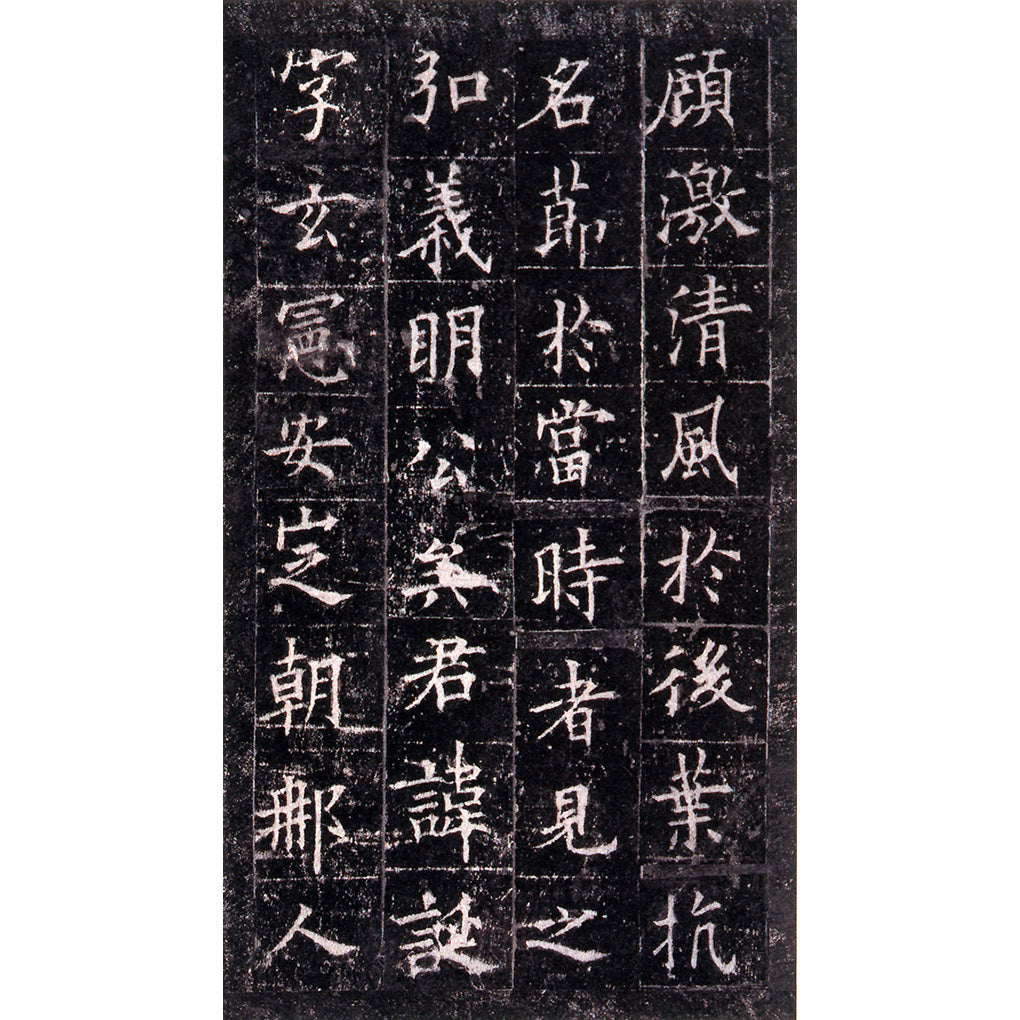 頋激清風於後葉抗
名莭於當時者見之
弘義明公矣君諱誕
字玄憲安定朝郍人